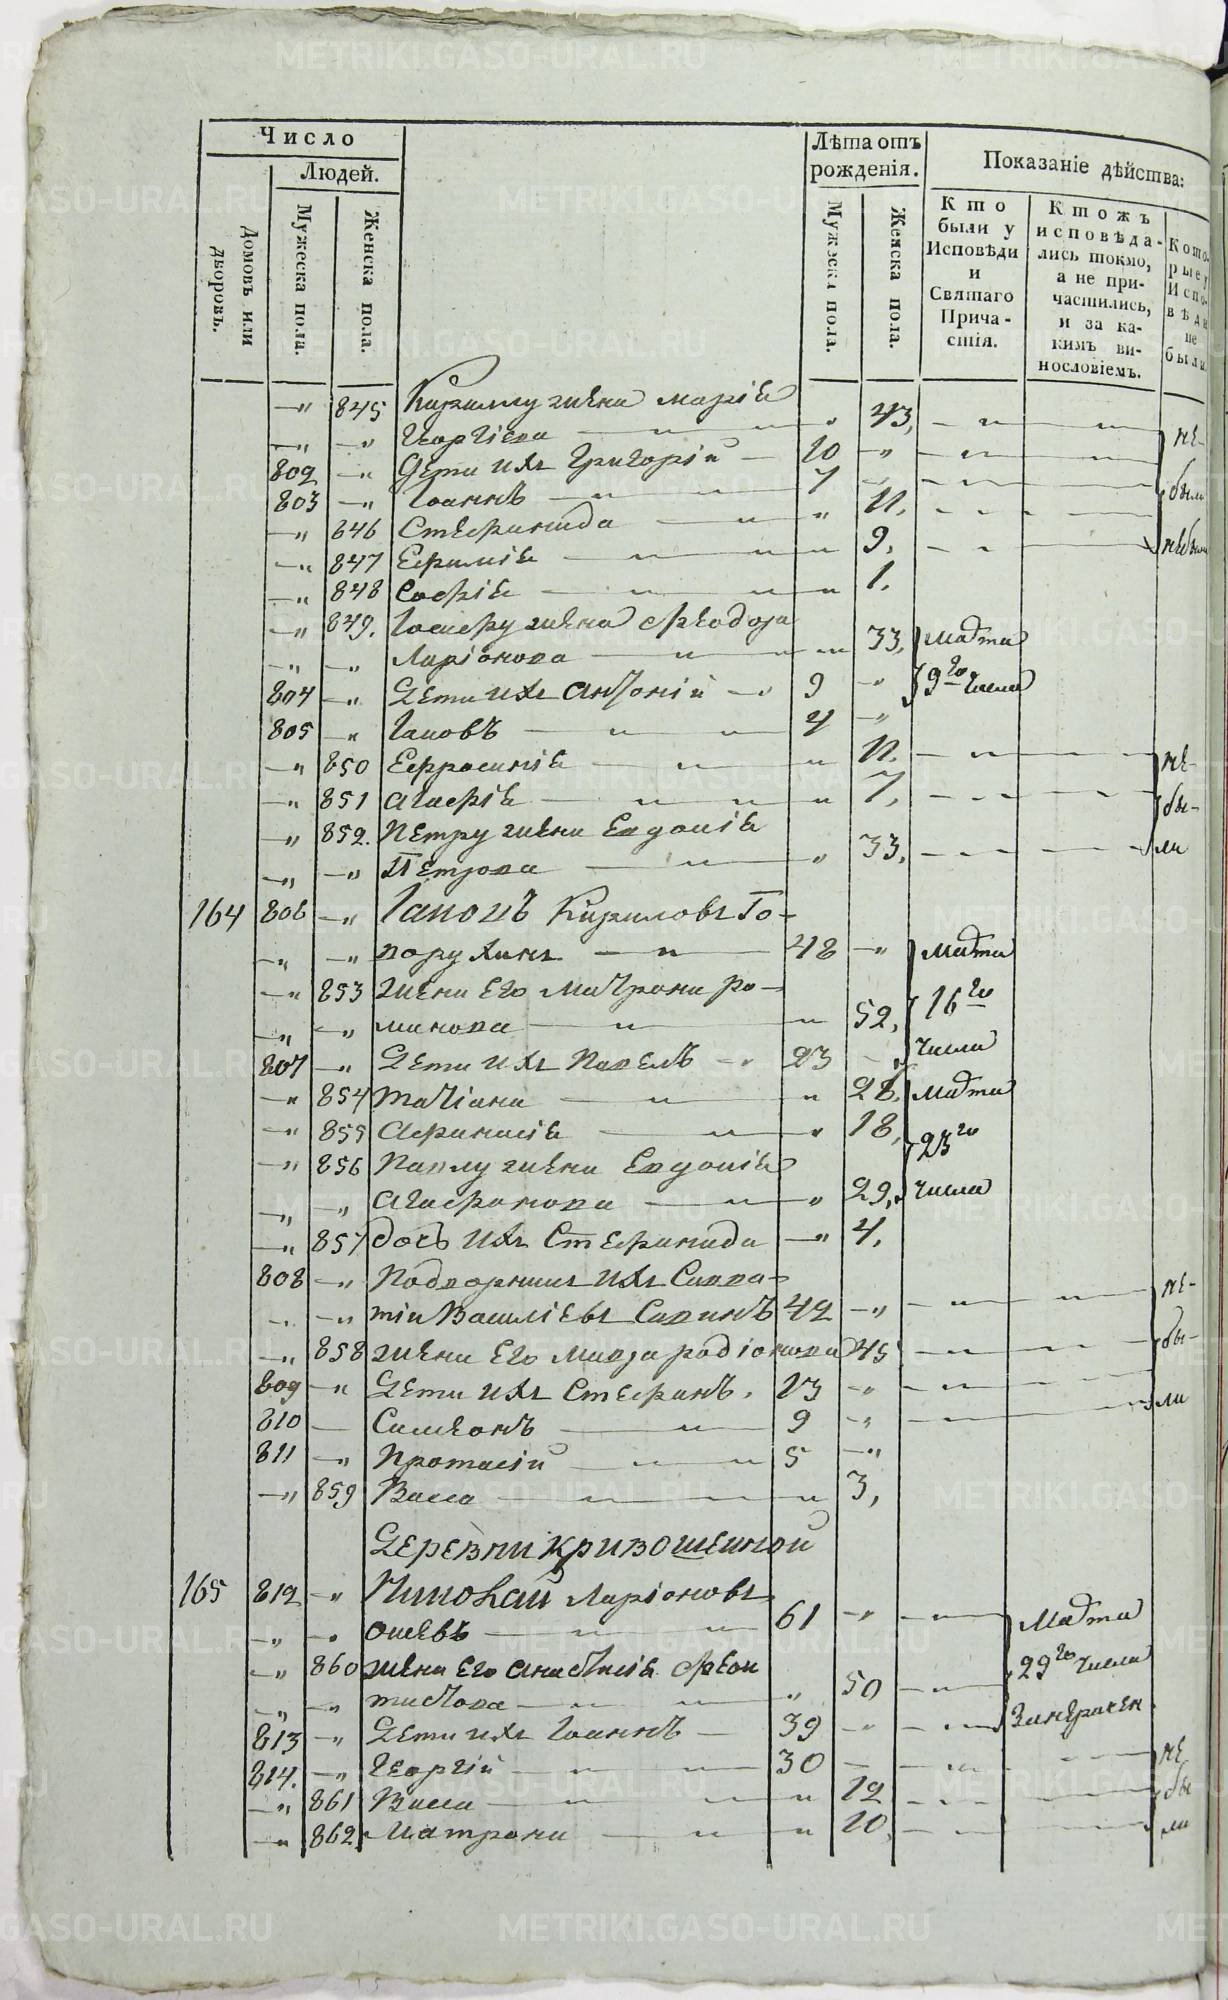 Число
Людей.
Домовъ или дворовъ.
Мужеска пола.
Женска пола.
Лѣта отъ рожденія.
Мужска пола.
Женска пола.
Показаніе дѣйства:
Кто были у Исповѣди и Святаго Причастія.
Ктожъ исповѣдались токмо, а не причастились, и за какимъ винословіемъ.
Которые у Исповѣди не были
—„ 845 Кириллу жена Марія
—„ —„ Георгіева „ 43, не-
802 —„ Дети ихъ Григорій 10 —„
803 —„ Іоаннъ 7 —„ были
—„ 846 Стефанида „ 11,
—„ 847 Ефимія „ 9, не были
—„ 848 Софія „ 1.
—„ 849. жена Феодора
—„ —„ Ларіонова „ 33, марта
804 —„ Дети ихъ Антоній 9 —„ 9го числа
805 —„ Іаковъ 4 —„
—„ 850 Ефросинія „ 11. не-
—„ 851 Агафія „ 7, бы-
—„ 852. Петру жена Евдокія
—„ —„ Петрова „ 33, ли
164 806 —„ Іаковъ Кириловъ То-
—„ —„ порухинъ 48 —„ марта
—„ 853 жена Его Матрона Ро-
—„ —„ манова „ 52, 16го
807 —„ Дети ихъ Павелъ 23 —„ числа
—„ 854 Татіана „ 28, марта
—„ 855 Афанасія „ 18, 23го
—„ 856 Павлу жена Евдокія
—„ —„ Агафонова „ 29, числа
—„ 857 дочь ихъ Стефанида —„ 4,
808 —„ Подворникъ ихъ Савва-
—„ —„ тій Василіевъ Савинъ 42 —„ не-
—„ 858 жена Его Мавра родіонова 45 бы-
809 —„ Дети ихъ Стефанъ. 13 —„ ли
810 — Симеонъ 9 —„
811 —„ Протасій 5 —„
—„ 859 Васса „ 3,
Деревни Кривошеиной
165 812 —„ Николай Ларіоновъ
—„ —„ 61 —„ Марта
—„ 860 жена Его Анастасія Феок
—„ —„ тистова „ 50 29го числа
813 —„ Дети ихъ Іоаннъ 39 —„
814. —„ Георгій 30 — не
—„ 861 Васса „ 12 бы
—„ 862 Матрона „ 10, ли
METRIKI.GASO-URAL.RU